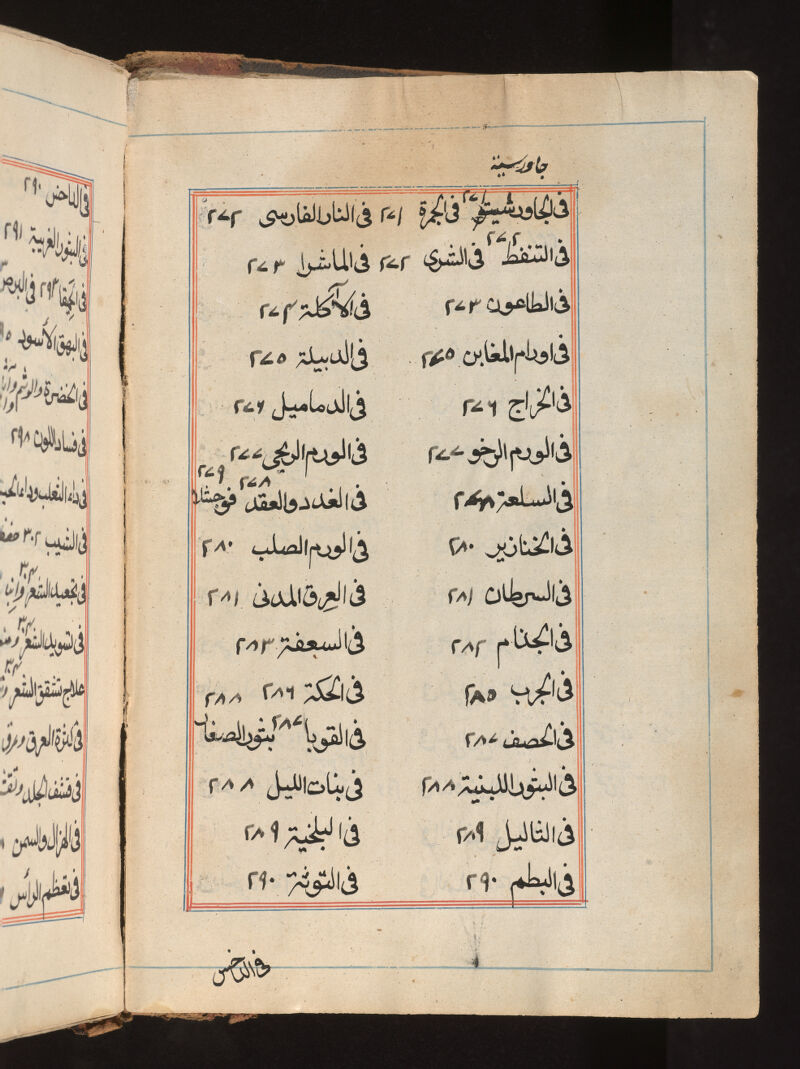 جاورسية
فى الجاورشيتو ٢٧١ فى الجمرة ٢٧١ فى النار الفارسى ٢٧٢
فى التنفط ٢٧٢ فى الشرى ٢٧٢ فى الماشرا ٢٧٣
فى الطاعون ٢٧٣ فى الآكلة ٢٧۴
فى اورام المغابن ٢٧٥ فى الدبيلة ٢٧٥
فى الخراج ٢٧۶ فى الدماميل ٢٧۶
فى الورم الرخو ٢٧٧ فى الورم الريحى ٢٧٧
فى السلعة ٢٧٨ فى الغدد والعقد ٢٧٨ ٢٧٩
فى الخنازير ٢٨٠ فى الورم الصلب ٢٨٠
فى السرطان ٢٨١ فى العرق المدنى ٢٨١
فى الجذام ٢٨٢ فى السعفة ٢٨٣
فى الجرب ٢٨٥ فى الحكة ٢٨۶ ٢٨٨
فى الحصف ٢٨٧ فى القوبا ٢٨٧ بثور الصغار
فى البثور اللبنية ٢٨٨ فى بنات الليل ٢٨٨
فى الثاليل ٢٨٩ فى البلخية ٢٨٩
فى البطم ٢٩٠ فى التوثة ٢٩٠
فى الداخس
فى الداحض ٢٩٠
فى البثور الغريبة ٢٩١
فى البرص
فى البهق الأسود
فى الخضرة والوشم
فى فساد اللون ٢٩٨
فى داء الثعلب وداء الحية
فى الشيب ٣٠٢
فى تجعيد الشعر
فى تسويد الشعر
علاج تشقق الشعر
فى كثرة العرق
فى قشف الجلد
فى الهزال والسمن
فى تعظم الرأس